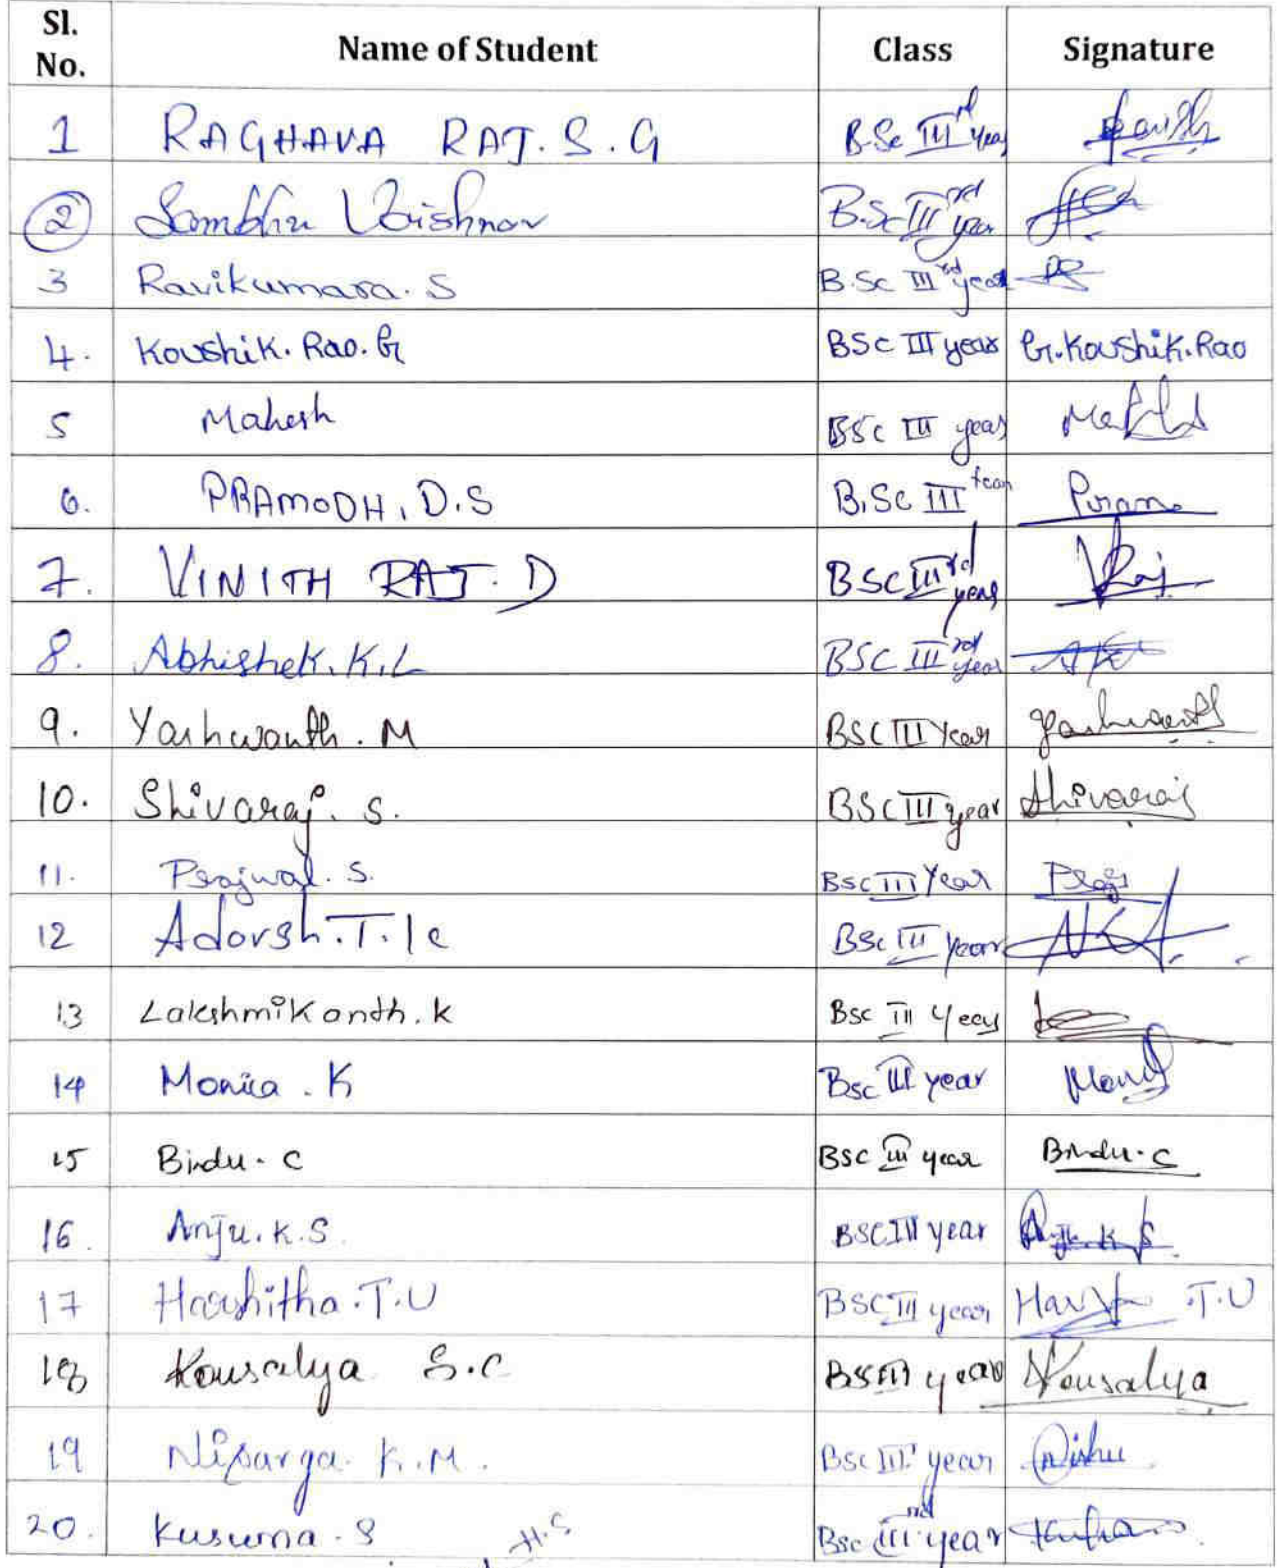 Sl. No. Name of Student Class Signature
1 RAGHAVA RAJ. S. G B.Sc III rd year
2 Sambhu Vaishnav B.Sc III rd year
3 Ravikumara. S B.Sc III rd year
4. Koushik. Rao. G BSc III year G. Koushik. Rao
5 Mahesh BSc III year
6. PRAMODH. D.S B.Sc III Year
7. VINITH RAJ. D BSC III rd year VRaj
8. Abhishek. K.L BSC III rd year
9. Yashwanth. M BSC III Year Yashwanth
10. Shivaraj. S. BSC III year Shivaraj
11. Prajwal. S. BSC III Year Praj
12 Adarsh. T. K BSc III year
13 Lakshmikanth. K BSC III Year
14 Monica. K BSC III year
15 Bindu. C BSC III year Bindu. C
16. Anju. K.S. BSC III year Anju. K. S.
17 Harshitha. T.U BSC III year T.U
18 Kousalya S.C BSC III year Kousalya
19 Nisarga. K.M. BSC III year Nishu
20. Kusuma. S BSC III rd year
H.S